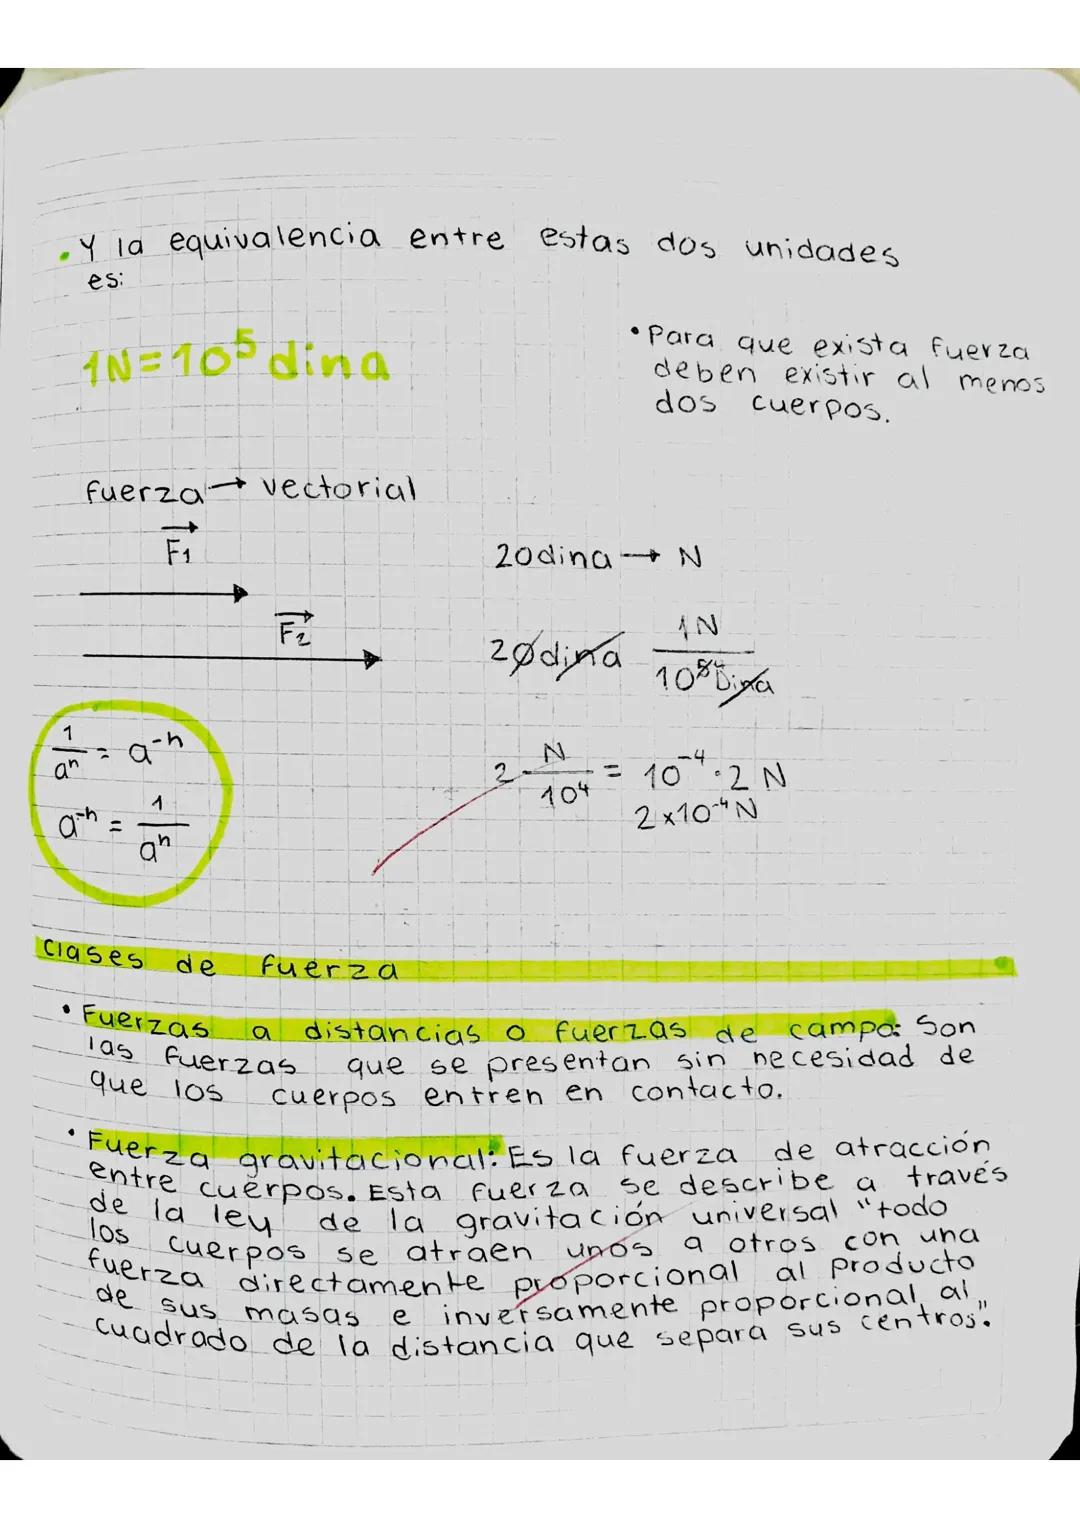 . Y la equivalencia entre estas dos unidades
es:
1N=10⁵ dina
• Para que exista fuerza
deben existir al menos
dos cuerpos.
fuerza → vectorial
F₁
F₂
20dina → N
20dina 1N
10⁵4 Dina
2 N/10⁴ = 10⁻⁴·2 N
2x10⁻⁴N
1/aⁿ = a⁻ⁿ
a⁻ⁿ = 1/aⁿ
clases de fuerza
• Fuerzas a distancias o fuerzas de campo: Son
las fuerzas que se presentan sin necesidad de
que los cuerpos entren en contacto.
• Fuerza gravitacional: Es la fuerza de atracción
entre cuerpos. Esta fuerza se describe a través
de la ley de la gravitación universal "todo
los cuerpos se atraen unos a otros con una
fuerza directamente proporcional al producto
de sus masas e inversamente proporcional al
cuadrado de la distancia que separa sus centros."